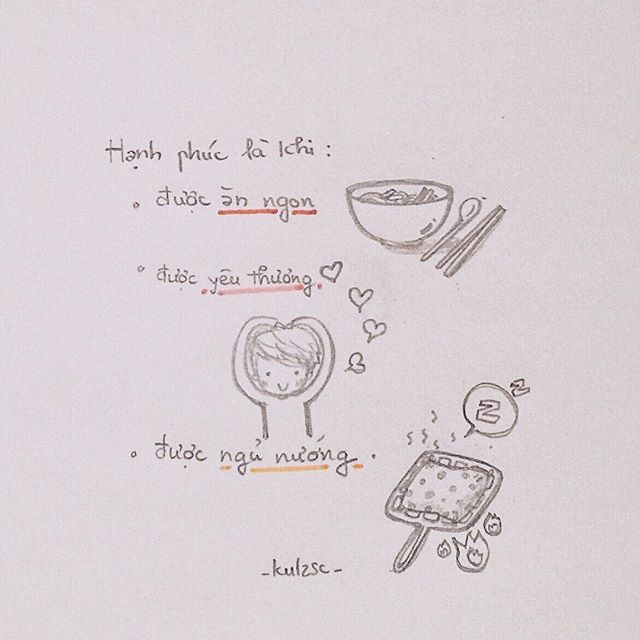 Hạnh phúc là khi :
• được ăn ngon
• được yêu thương.
• được ngủ nướng.
Z
z
-kulzsc-